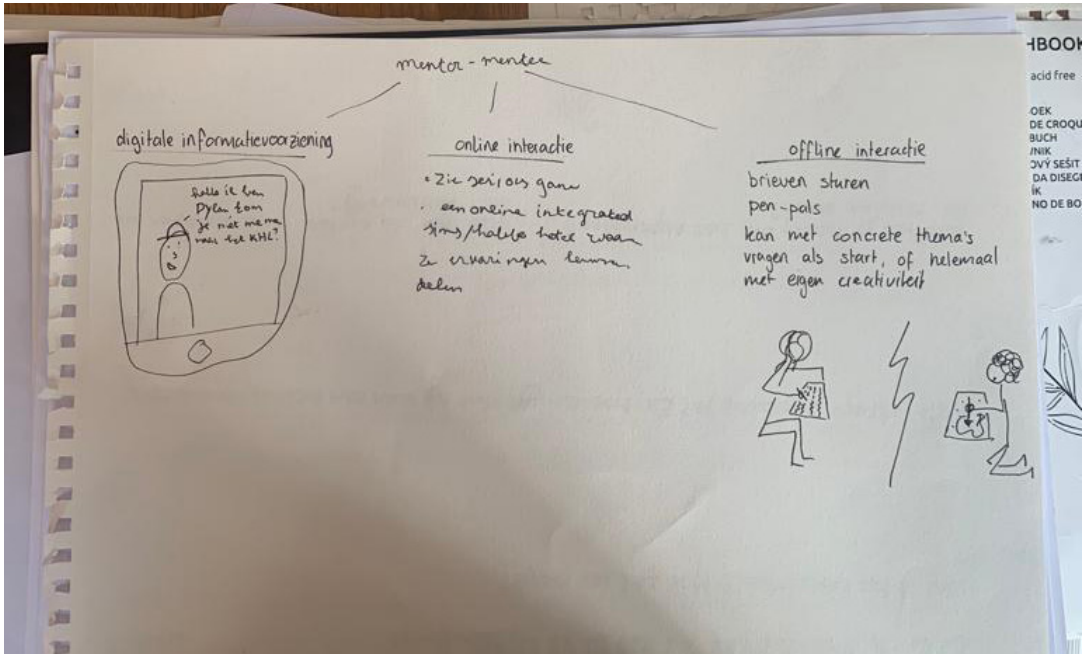 mentor - mentee
digitale informatievoorziening
hallo ik ben
Dylan kom
je met me mee
naar het KHL?
online interactie
• Zie serious game
een online integrated
sims/habbo hotel waar
ze ervaringen kunnen
delen
offline interactie
brieven sturen
pen-pals
kan met concrete thema's
vragen als start, of helemaal
met eigen creativiteit
HBOOK
acid free
OEK
DE CROQU
BUCH
VNIK
OVÝ SEŠIT
DA DISEG
ÍK
NO DE BO